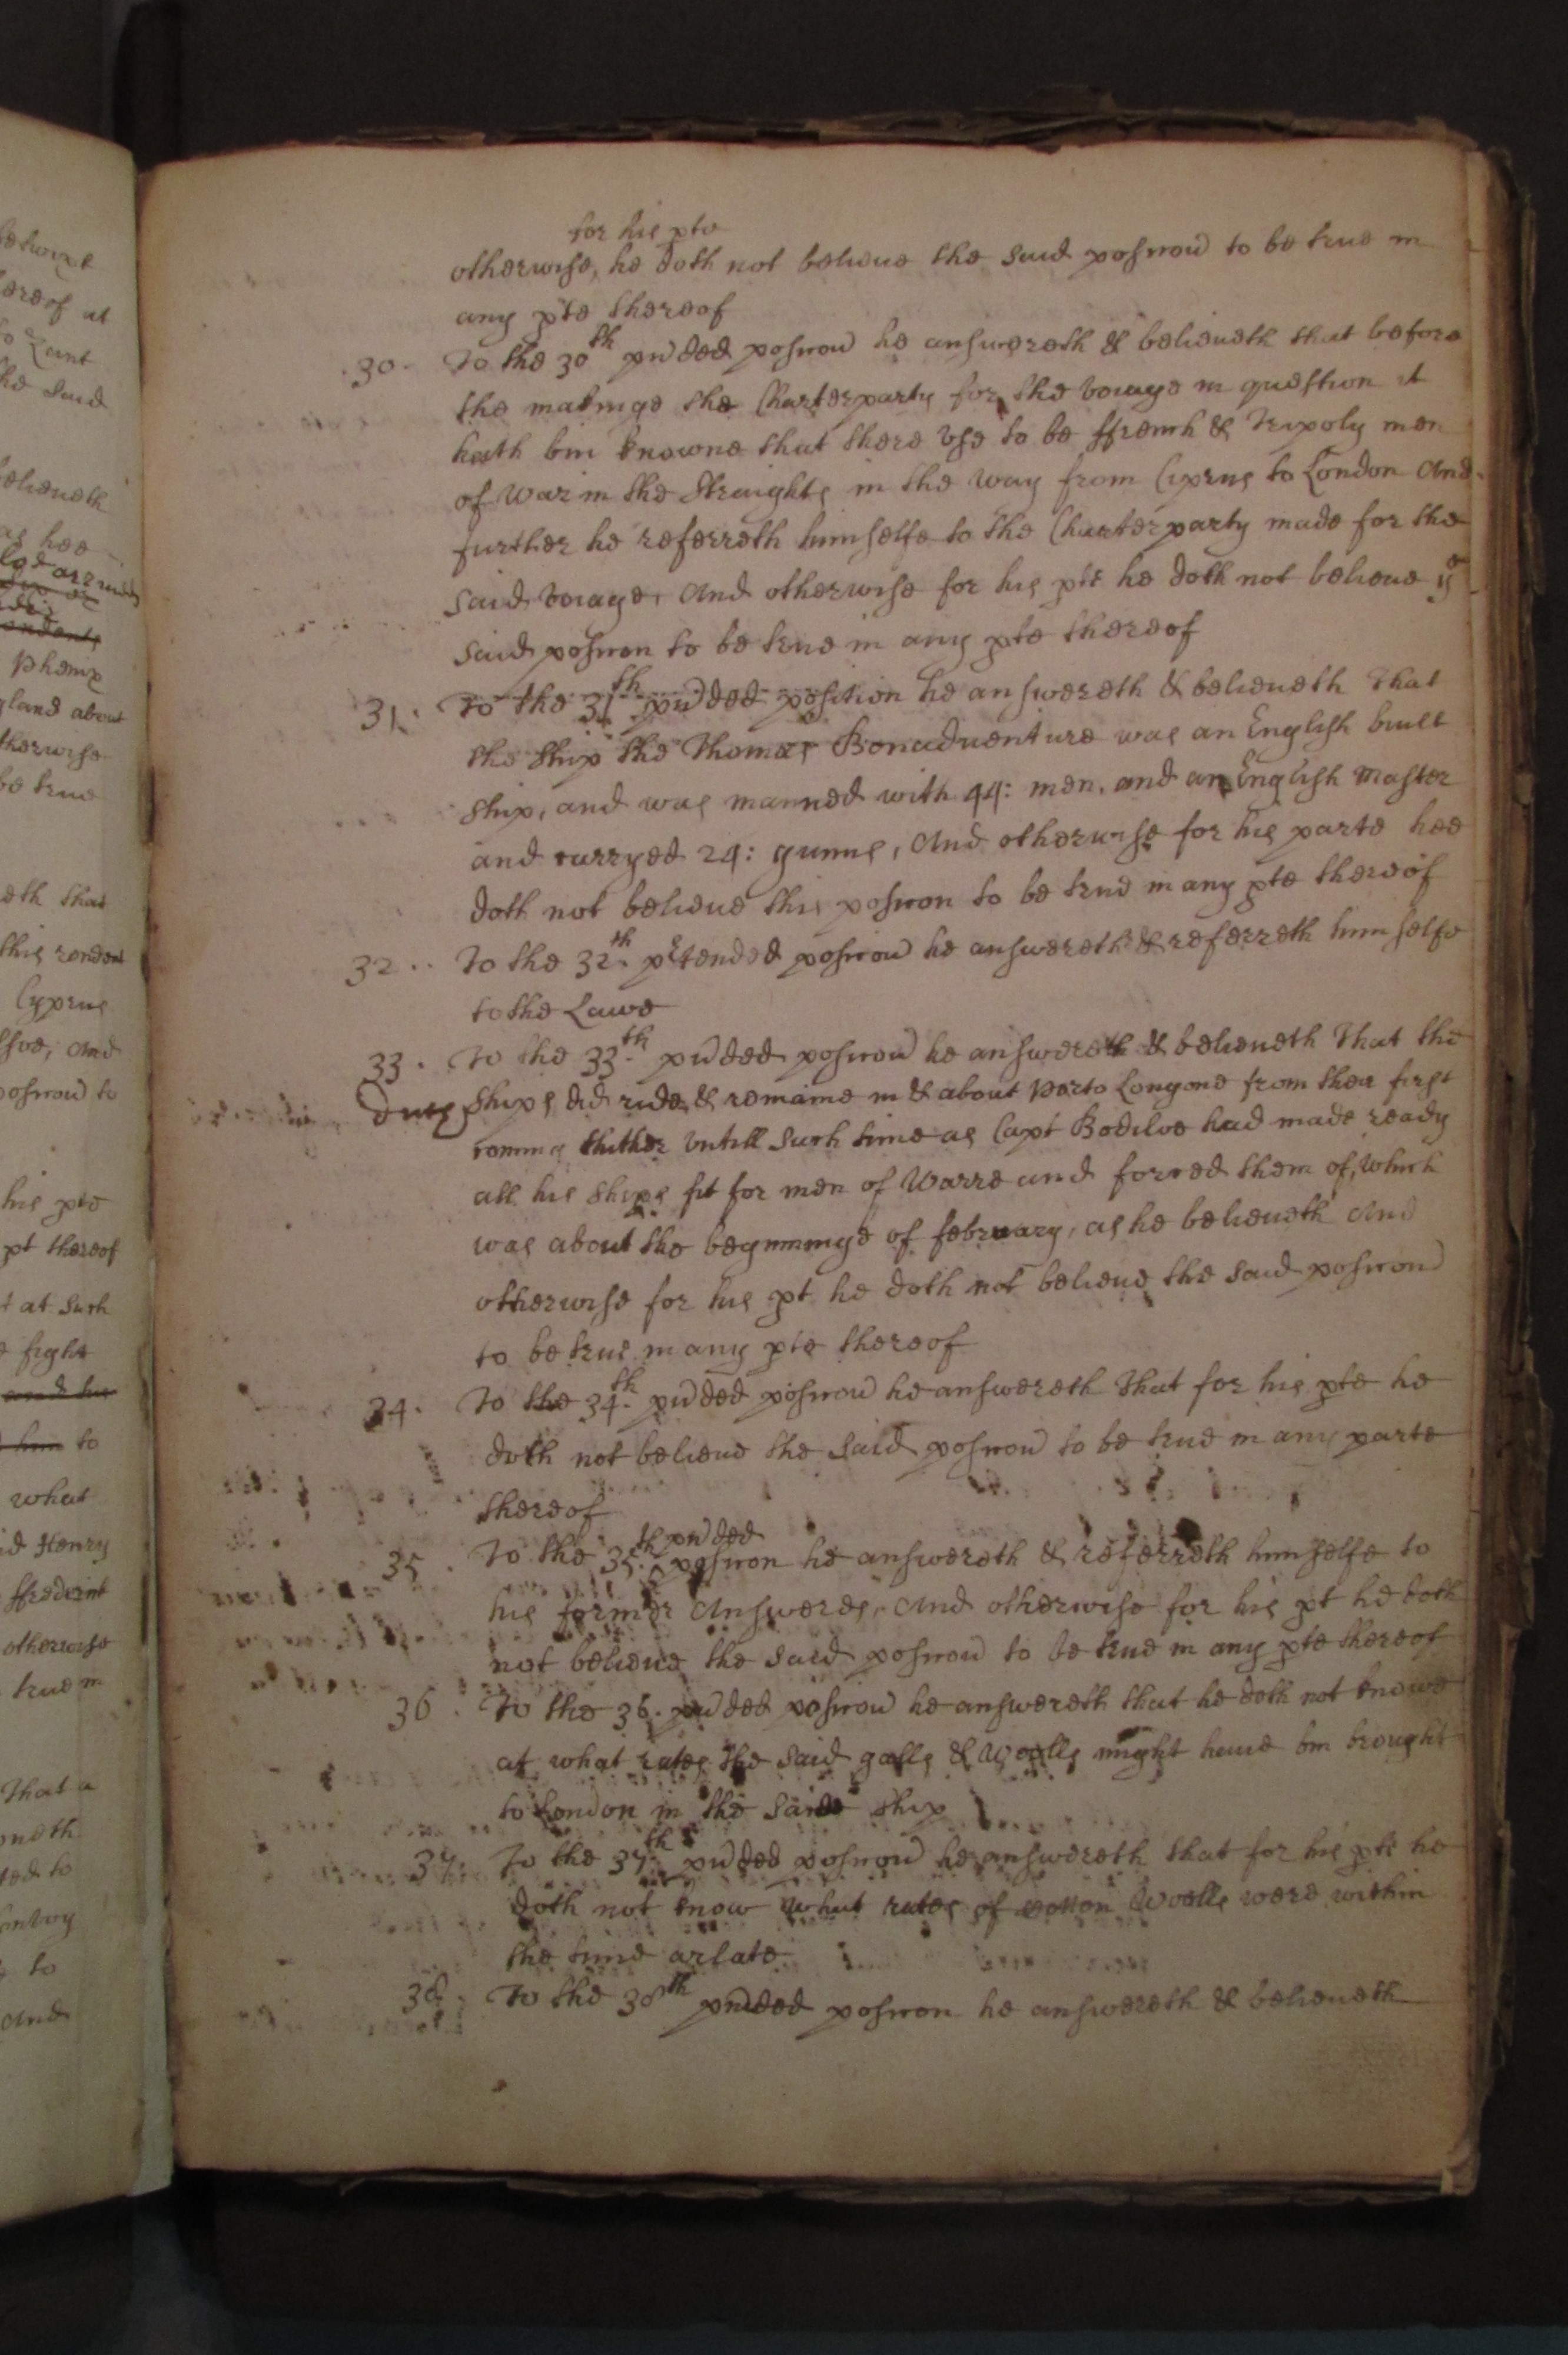 for his pte
otherwise, he doth not beleiue the said posicon to be true in
any pte thereof
30. To the 30th prtded posicon he answereth & beleiueth that before
the makinge the Charterparty for the voiage in question it
hath bin knowne that there vse to be ffrench & Tripoly men
of War in the Straights in the way from Ciprus to London And
further he referreth himselfe to the Charterparty made for the
said voiage, And otherwise for his pte he doth not beleiue ye
said posicon to be true in any pte thereof
31. To the 31th prtded position he answereth & beleiueth That
the ship the Thomas Bonaduenture was an English built
ship, and was manned with 44: men, and an English Master
and carryed 24: gunns, And otherwise for his parte hee
doth not beleiue this posicon to be true in any pte thereof
32. To the 32.th prtended posicon he answereth & referreth himselfe
to the Lawe
33. To the 33.th prtded posicon he answereth & beleiueth That the
Ships did ride & remaine in & about Porto Longone from their first
coming thither vntill such time as Capt Bodiloe had made ready
all his ships fit for men of Warre and forced them of, which
was about the beginninge of february, as he beleiueth And
otherwise for his pt he doth not beleiue the said posicon
to be true in any pte thereof
34. To the 34.th prtded posicon he answereth That for his pte he
doth not beleiue the said posicon to be true in any parte
thereof
prtded
35. To the 35.th posicon he answereth & referreth himselfe to
his former Answeres, And otherwise for his pt he doth
not beleiue the said posicon to be true in any pte thereof
36. To the 36. prtded posicon he answereth that he doth not knowe
at what rates the said galls & Woolls might haue bin brought
to London in the said ship
37. To the 37.th prtded posicon he answereth that for his pte he
doth not know what rates of cotton Woolls were within
the time arlate
38. To the 38th prtded posicon he answereth & beleiueth